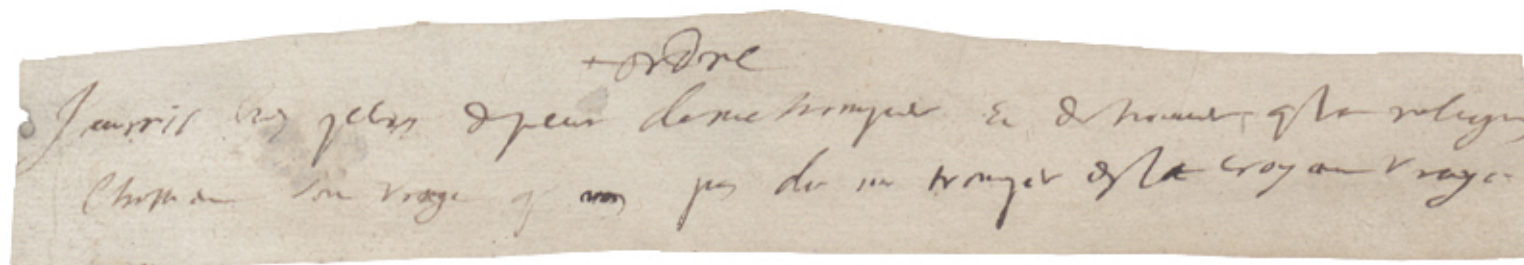 + ordre
Jaurois bien plus de peur de me tromper Et de trouver q la religion
Chrestienne soit vraye q non pas de me tromper en la croyant vraye